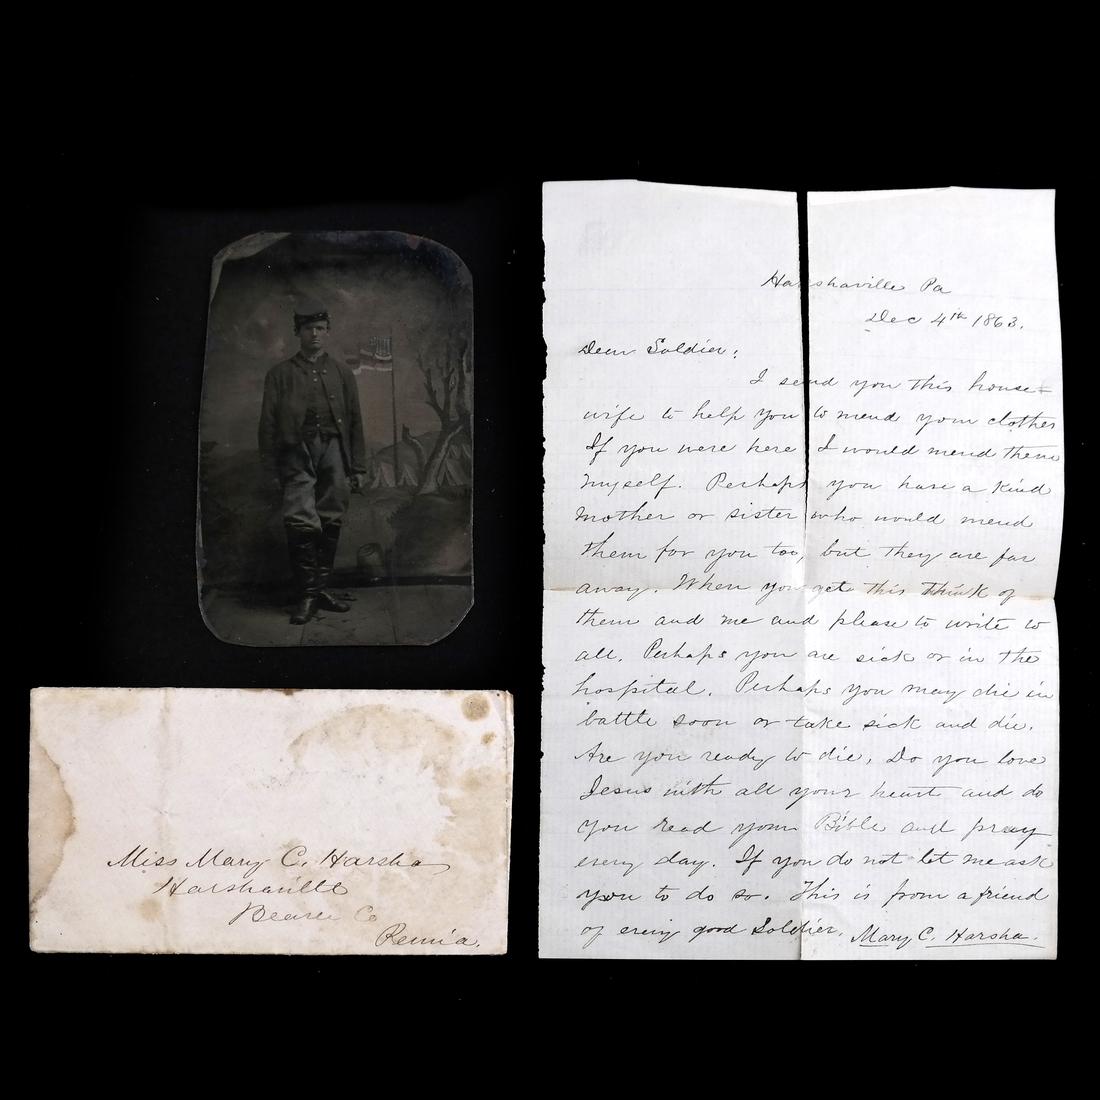 Harshaville Pa
Dec 4th 1863.
Dear Soldier;
I send you this house=
wife to help you to mend your clothes
If you were here I would mend them
myself. Perhaps you have a kind
mother or sister who would mend
them for you too, but they are far
away. When you get this think of
them and me and please to write to
all. Perhaps you are sick or in the
hospital. Perhaps you may die in
battle soon or take sick and die.
Are you ready to die, Do you love
Jesus with all your heart and do
you read your Bible and pray
every day. If you do not let me ask
you to do so. This is from a friend
of every good Soldier. Mary C. Harsha.
Miss Mary C. Harsha
Harshaville
Beaver Co
Penn'a.